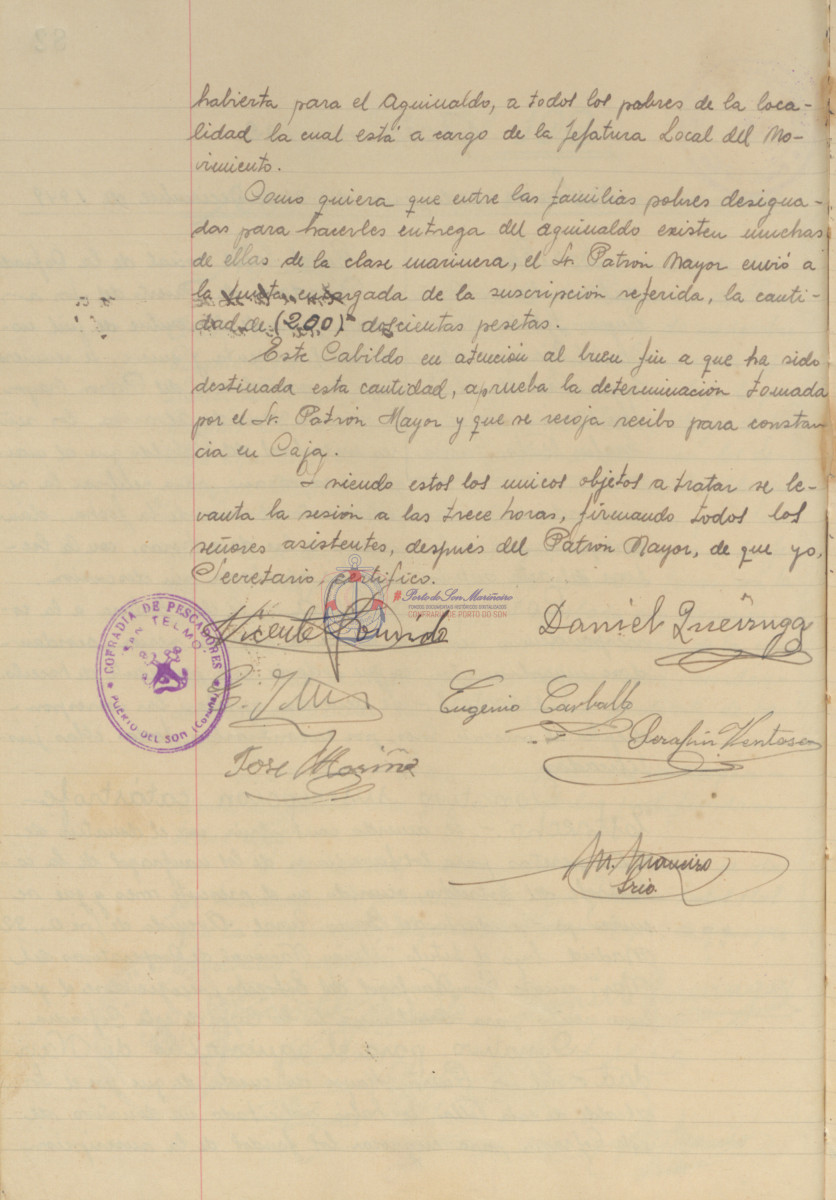 habierta para el Aguinaldo, a todos los pobres de la loca-
lidad la cual está a cargo de la Jefatura Local del Mo-
vimiento.
Como quiera que entre las familias pobres designa-
das para hacerles entrega del aguinaldo existen muchas
de ellas de la clase marinera, el Sr. Patrón Mayor envió a
la Junta encargada de la suscripción referida, la canti-
dad de (200) doscientas pesetas.
Este Cabildo en atención al buen fin a que ha sido
destinada esta cantidad, aprueba la determinación tomada
por el Sr. Patrón Mayor y que se recoja recibo para constan
cia en Caja.
Y siendo estos los unicos objetos a tratar se le-
vanta la sesión a las trece horas, firmando todos los
señores asistentes, después del Patrón Mayor, de que yo,
Secretario, certifico.
#Porto do Son Mariñeiro
FONDOS DOCUMENTAIS HISTÓRICOS DIXITALIZADOS
CONFRARÍA DE PORTO DO SON
Vicente
Daniel Queiruga
COFRADIA DE PESCADORES
"SAN TELMO"
PUERTO DEL SON (Coruña)
Eugenio Carballo
Serafín Ventoso
José Mariño
M. Maneiro
Srio.